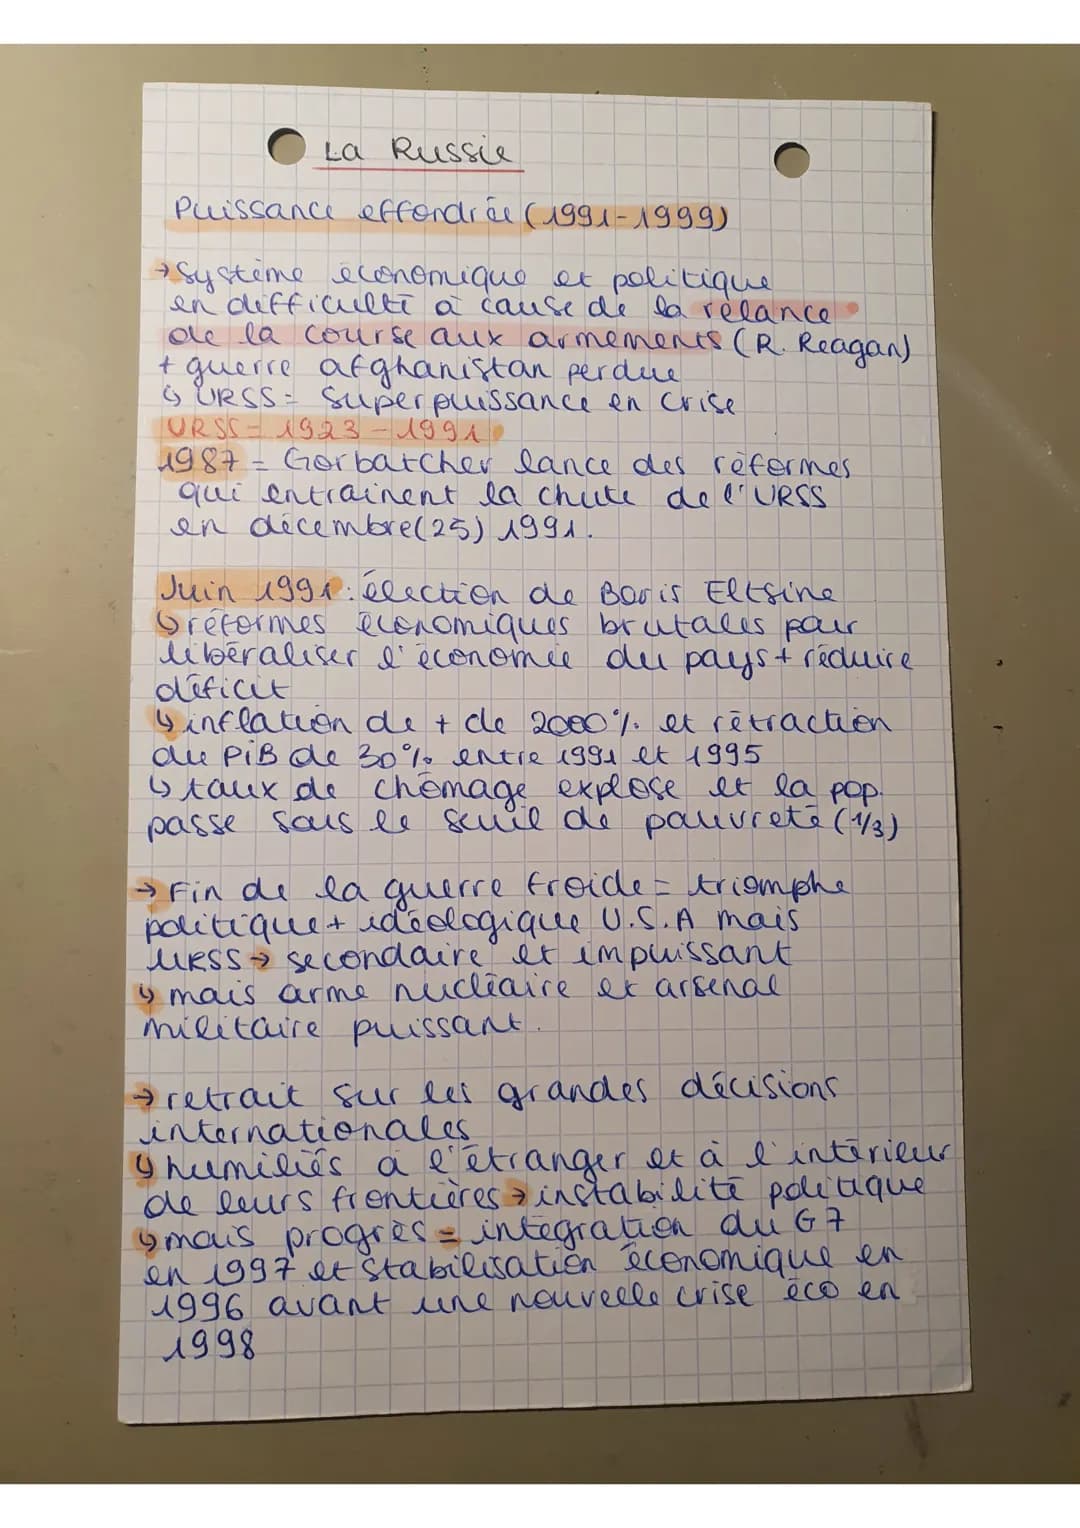 La Russie
Puissance effondrée (1991-1999)
→ Système économique et politique
en difficulté à cause de la relance
de la course aux armements (R. Reagan)
+ guerre afghanistan perdue
↳ URSS = superpuissance en crise
URSS = 1923-1991
1987 = Gorbatchev lance des réformes
qui entrainent la chute de l'URSS
en décembre (25) 1991.
Juin 1991 : élection de Boris Eltsine
↳ réformes économiques brutales pour
libéraliser l'économie du pays + réduire
déficit
↳ inflation de + de 2000% et rétraction
du PiB de 30% entre 1991 et 1995
↳ taux de chômage explose et la pop.
passe sous le seuil de pauvreté (1/3)
→ Fin de la guerre froide = triomphe
politique + idéologique U.S.A mais
URSS → secondaire et impuissant
↳ mais arme nucléaire et arsenal
militaire puissant.
→ retrait sur les grandes décisions
internationales
↳ humiliés à l'étranger et à l'intérieur
de leurs frontières → instabilité politique
↳ mais progrès = intégration du G7
en 1997 et stabilisation économique en
1996 avant une nouvelle crise éco en
1998